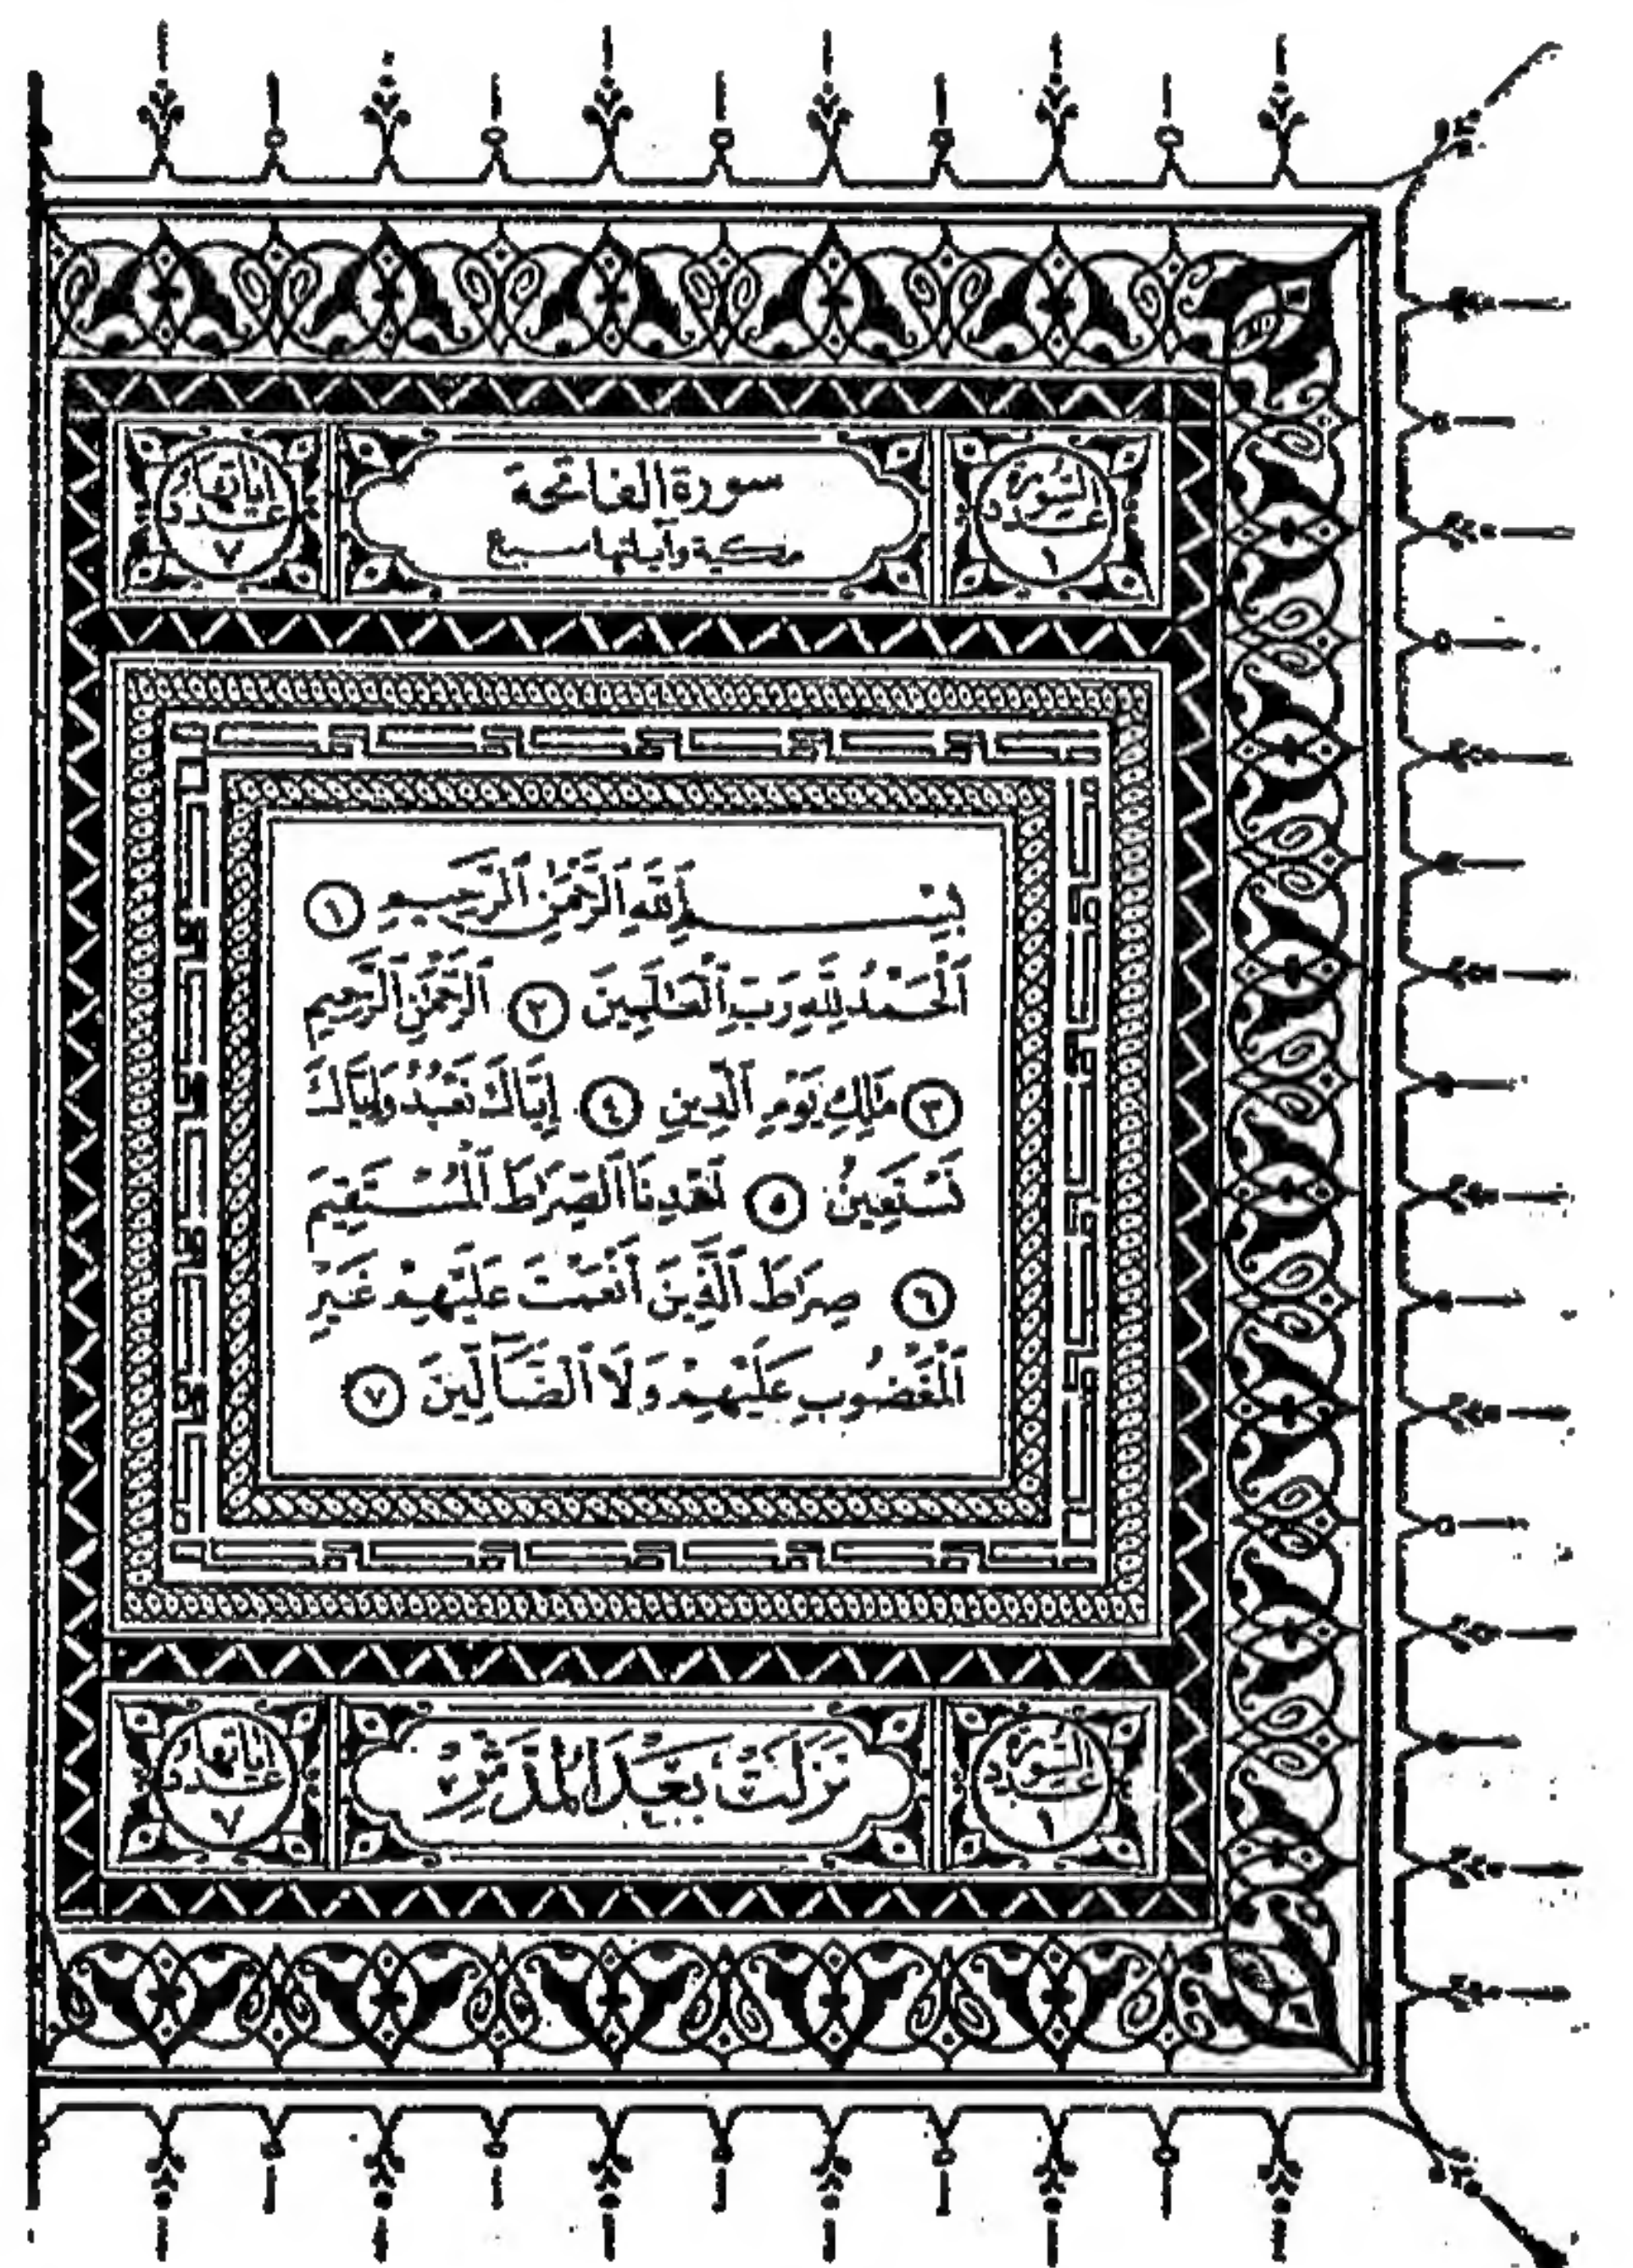 عدد السورة ١
سورة الفاتحة
مكية وآياتها سبع
عدد آياتها ٧
بِسْمِ ٱللَّهِ ٱلرَّحْمَٰنِ ٱلرَّحِيمِ ١
ٱلْحَمْدُ لِلَّهِ رَبِّ ٱلْعَٰلَمِينَ ٢ ٱلرَّحْمَٰنِ ٱلرَّحِيمِ
٣ مَٰلِكِ يَوْمِ ٱلدِّينِ ٤ إِيَّاكَ نَعْبُدُ وَإِيَّاكَ
نَسْتَعِينُ ٥ ٱهْدِنَا ٱلصِّرَاطَ ٱلْمُسْتَقِيمَ
٦ صِرَاطَ ٱلَّذِينَ أَنْعَمْتَ عَلَيْهِمْ غَيْرِ
ٱلْمَغْضُوبِ عَلَيْهِمْ وَلَا ٱلضَّآلِّينَ ٧
عدد السورة ١
نَزَلَتْ بَعْدَ الْمُدَّثِّرِ
عدد آياتها ٧